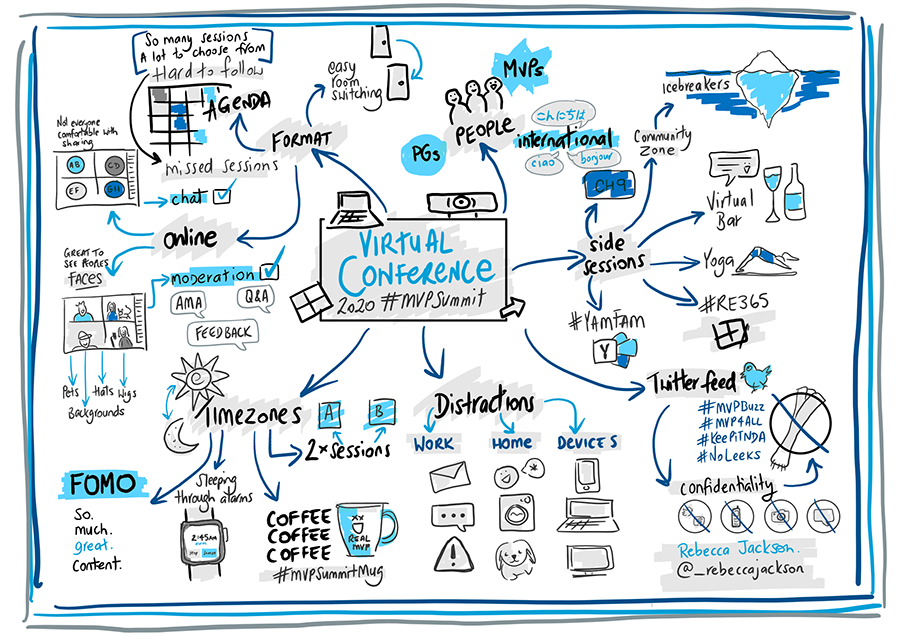 So many sessions
A lot to choose from
Hard to follow
AGENDA
missed sessions
FORMAT
easy
room
switching
MVPs
PGs
PEOPLE
international
こんにちは
ciao
bonjour
CH9
Icebreakers
Community
Zone
Virtual
Bar
Yoga
side
sessions
#RE365
#YamFam
Y
Not everyone
comfortable with
sharing
AB
CD
EF
GH
chat
online
Great to
see peoples
FACES
moderation
AMA
Q&A
FEEDBACK
Pets
Hats
Wigs
Backgrounds
VIRTUAL
CONFERENCE
2020 #MVPSummit
TIMEZONES
A
B
2x sessions
FOMO
So.
much.
great.
Content.
Sleeping
through alarms
2:45AM
COFFEE
COFFEE
COFFEE
XX
REAL
MVP
#mvpSummitMug
Distractions
WORK
HOME
DEVICES
Twitter feed
#MVPBuzz
#MVP4ALL
#KeePiTNDA
#NoLeeks
confidentiality
Rebecca Jackson.
@_rebeccajackson